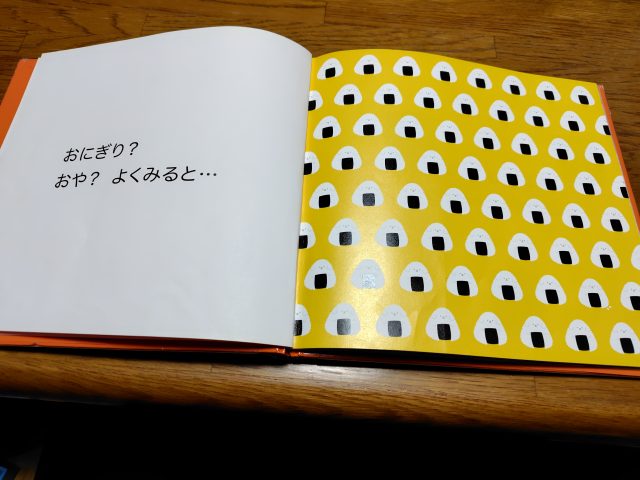 おにぎり?
おや? よくみると…